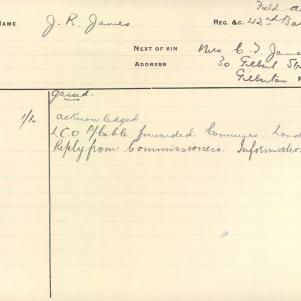 Field A
NAME J. R. James REG. &C. 42nd Ba
NEXT OF KIN Mrs C. J. Jame
ADDRESS 30 Gilbert St
Gilberton
gased.
1/2 acknowledged.
LCO forwarded Commrs. Lond
Reply from Commissioners. Informatio